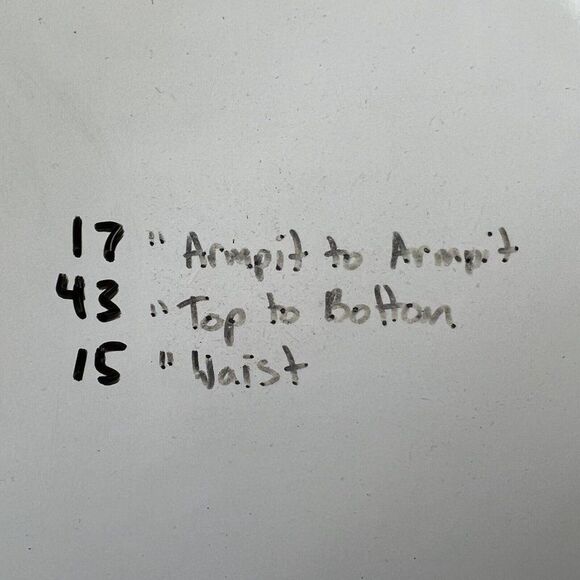 17 " Armpit to Armpit
43 " Top to Bottom
15 " Waist